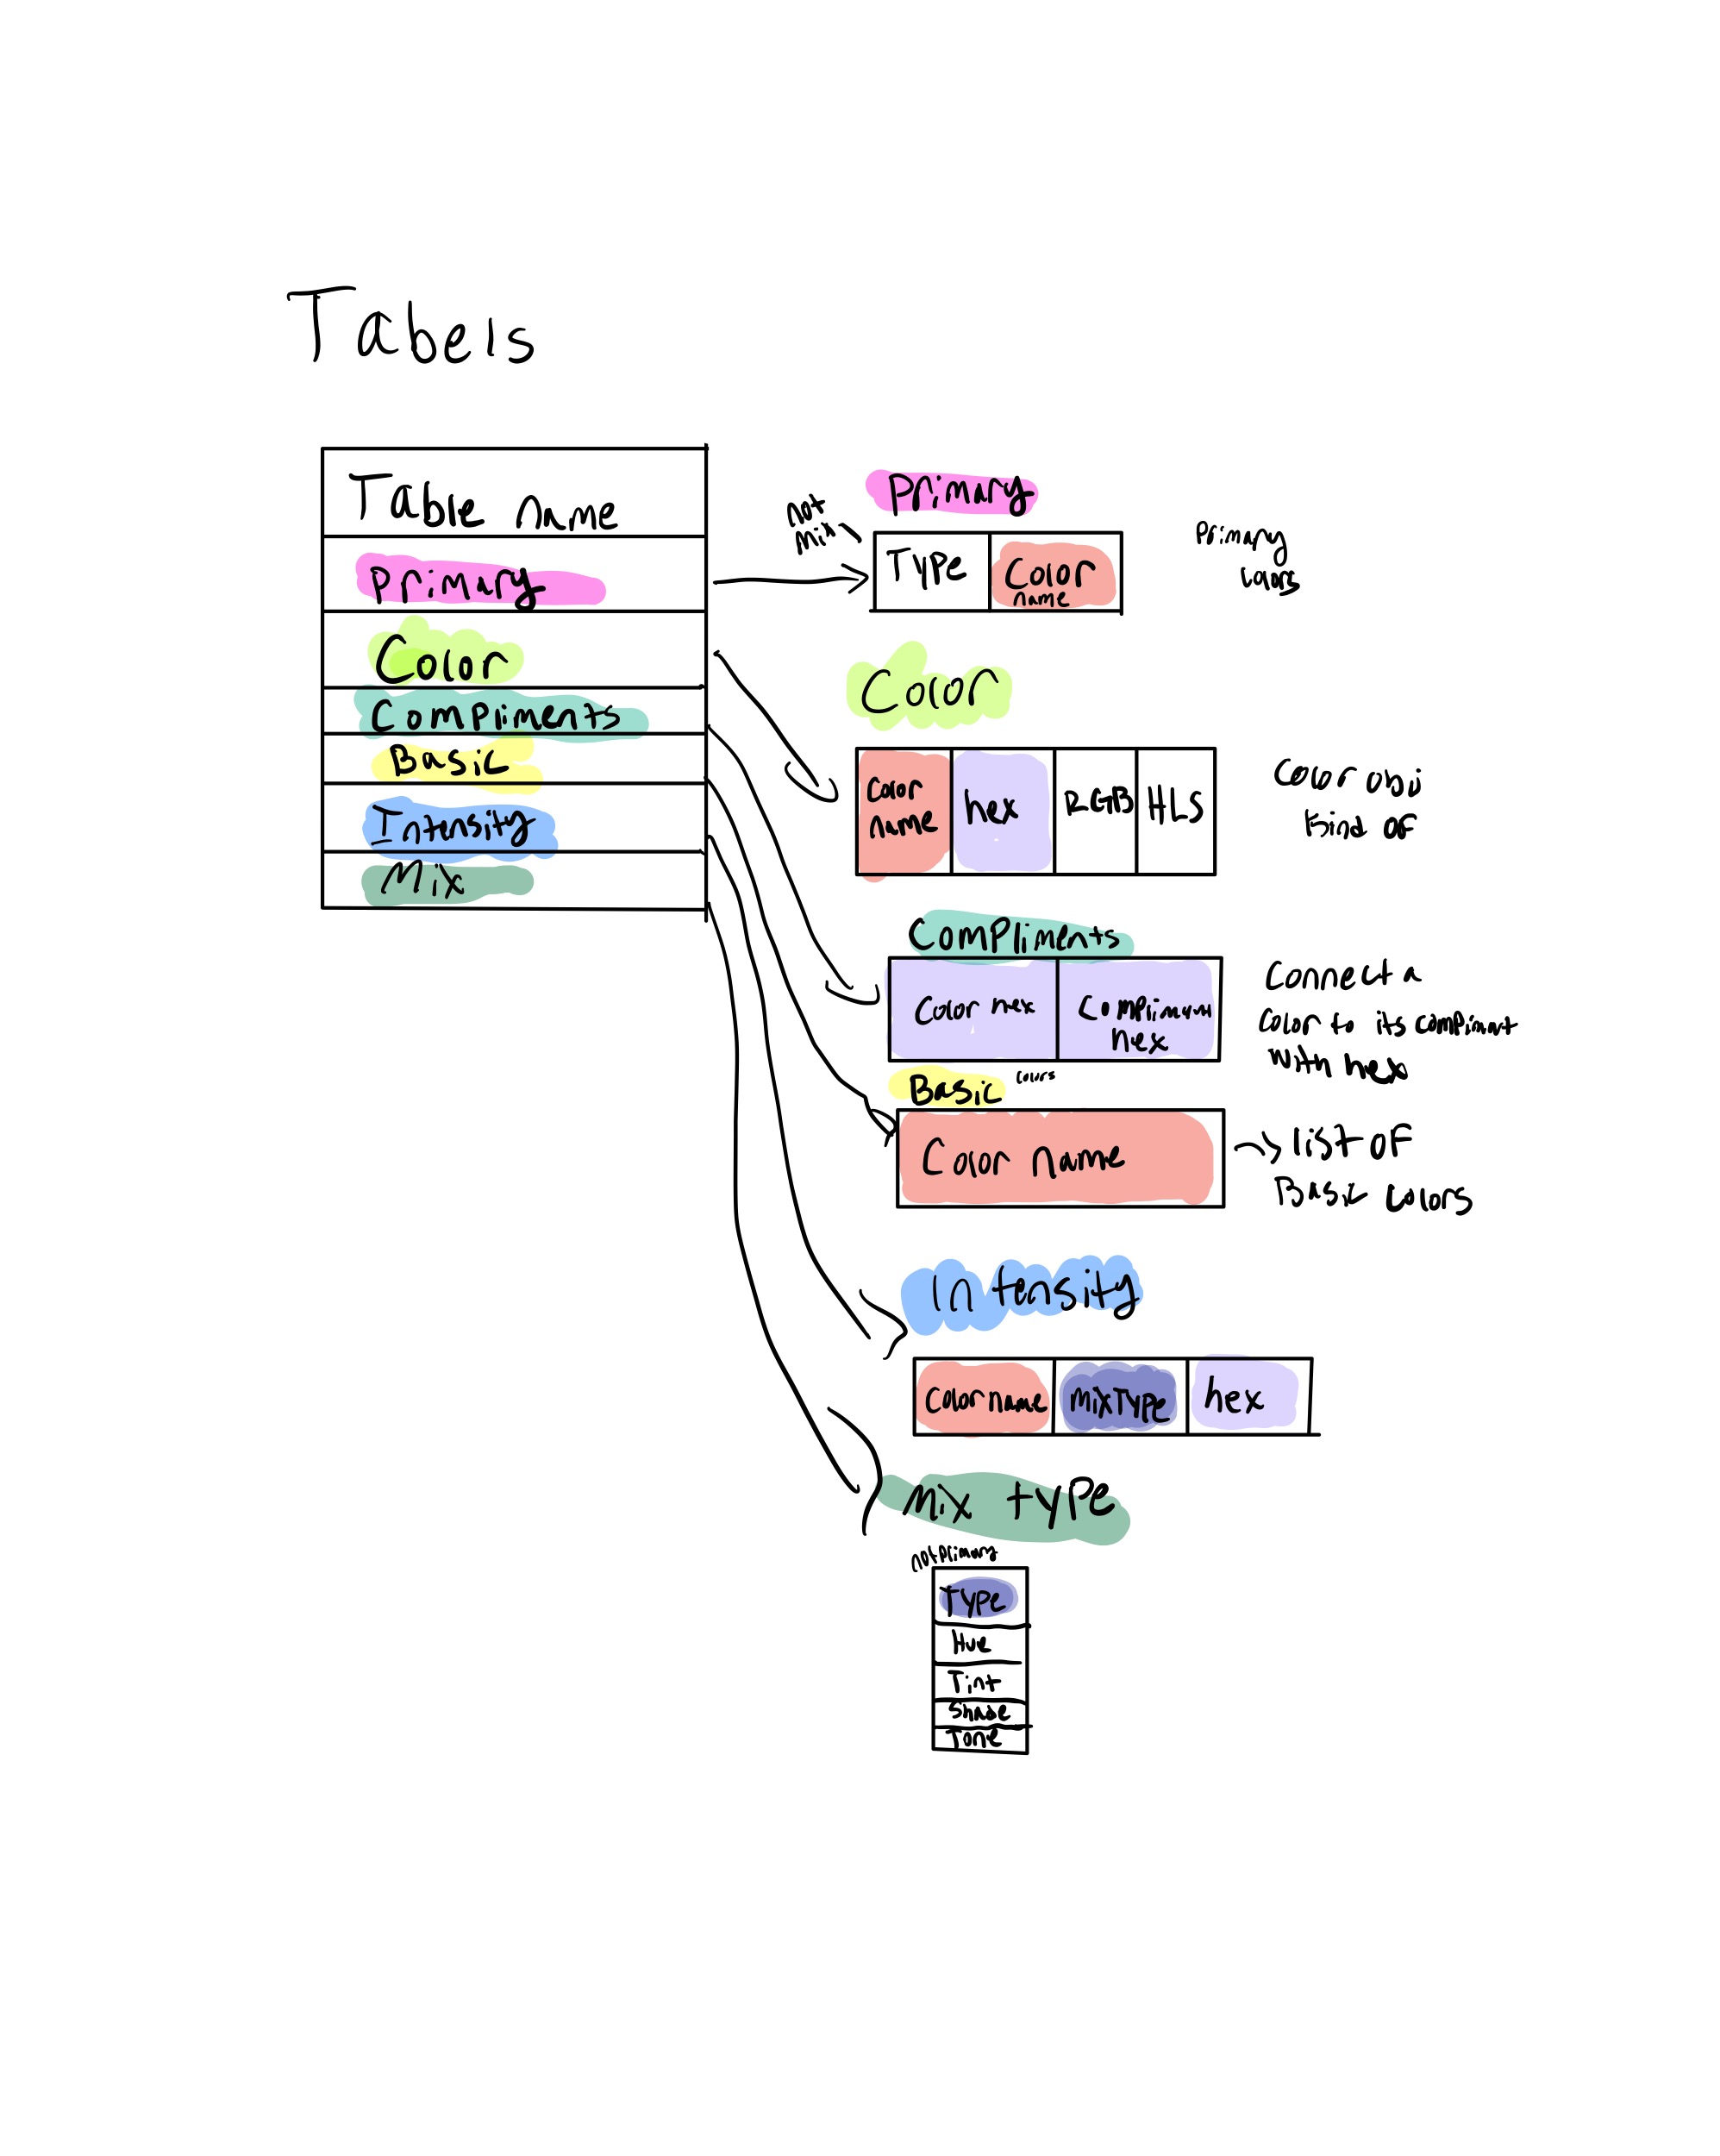 Tabels
Table name
Primary
Color
Compliments
Basic
Intensity
Mix
not
mix
Primary
Type
Color
name
Primary
Colors
Color
Color
name
hex
RGB
HLS
Color obj
kind of
Compliments
Color hex
Compliment
hex
Connect a
Color to its compliment
with hex
Basic colors
Color name
list of
Basic Colors
Intensity
Color name
mixType
hex
Mix type
not primary
Type
Hue
Tint
Shade
Tone